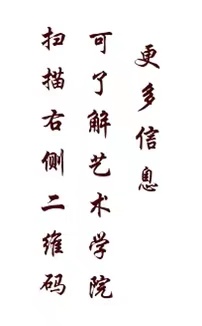 扫描右侧二维码
可了解艺术学院
更多信息